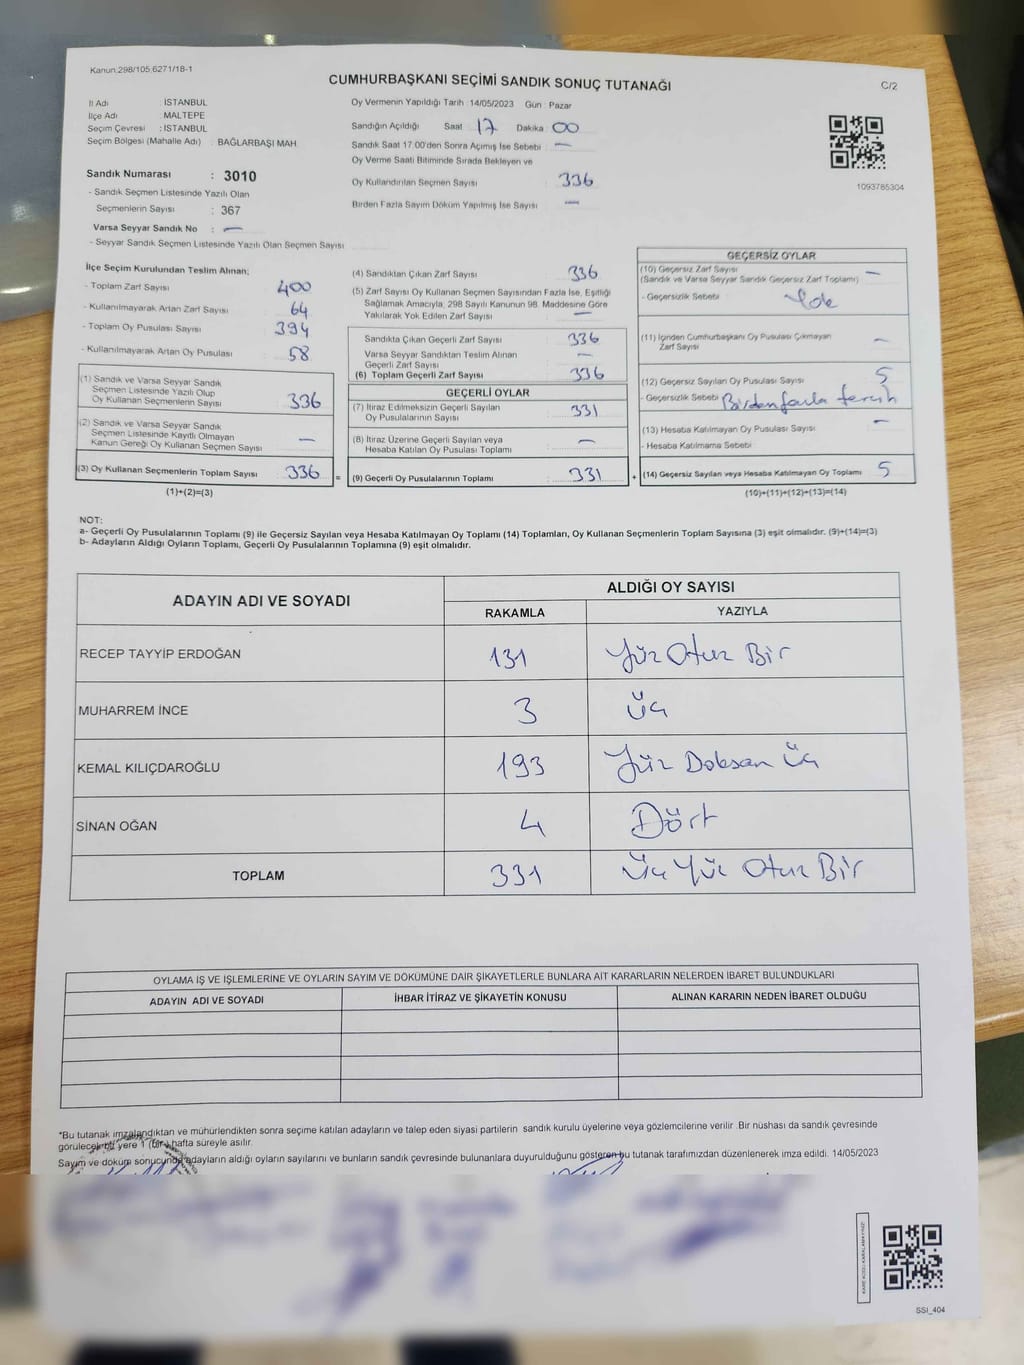 Kanun:298/105,6271/18-1
CUMHURBAŞKANI SEÇİMİ SANDIK SONUÇ TUTANAĞI
C/2
İl Adı : İSTANBUL
İlçe Adı : MALTEPE
Seçim Çevresi : İSTANBUL
Seçim Bölgesi (Mahalle Adı) : BAĞLARBAŞI MAH.
Sandık Numarası : 3010
- Sandık Seçmen Listesinde Yazılı Olan
Seçmenlerin Sayısı : 367
Varsa Seyyar Sandık No : —
- Seyyar Sandık Seçmen Listesinde Yazılı Olan Seçmen Sayısı
Oy Vermenin Yapıldığı Tarih : 14/05/2023 Gün : Pazar
Sandığın Açıldığı Saat 17 Dakika : 00
Sandık Saat 17.00'den Sonra Açımış İse Sebebi : —
Oy Verme Saati Bitiminde Sırada Bekleyen ve
Oy Kullandırılan Seçmen Sayısı : 336
Birden Fazla Sayım Döküm Yapılmış İse Sayısı : —
1093785304
İlçe Seçim Kurulundan Teslim Alınan;
- Toplam Zarf Sayısı : 400
- Kullanılmayarak Artan Zarf Sayısı : 64
- Toplam Oy Pusulası Sayısı : 394
- Kullanılmayarak Artan Oy Pusulası : 58
(1) Sandık ve Varsa Seyyar Sandık
Seçmen Listesinde Yazılı Olup
Oy Kullanan Seçmenlerin Sayısı : 336
(2) Sandık ve Varsa Seyyar Sandık
Seçmen Listesinde Kayıtlı Olmayan
Kanun Gereği Oy Kullanan Seçmen Sayısı : —
(3) Oy Kullanan Seçmenlerin Toplam Sayısı : 336
(1)+(2)=(3)
=
(4) Sandıktan Çıkan Zarf Sayısı : 336
(5) Zarf Sayısı Oy Kullanan Seçmen Sayısından Fazla İse, Eşitliği
Sağlamak Amacıyla, 298 Sayılı Kanunun 98. Maddesine Göre
Yakılarak Yok Edilen Zarf Sayısı : —
Sandıkta Çıkan Geçerli Zarf Sayısı : 336
Varsa Seyyar Sandıktan Teslim Alınan
Geçerli Zarf Sayısı : —
(6) Toplam Geçerli Zarf Sayısı : 336
GEÇERLİ OYLAR
(7) İtiraz Edilmeksizin Geçerli Sayılan
Oy Pusulasının Sayısı : 331
(8) İtiraz Üzerine Geçerli Sayılan veya
Hesaba Katılan Oy Pusulası Toplamı : —
(9) Geçerli Oy Pusulalarının Toplamı : 331
+
GEÇERSİZ OYLAR
(10) Geçersiz Zarf Sayısı : —
(Sandık ve Varsa Seyyar Sandık Geçersiz Zarf Toplamı)
- Geçersizlik Sebebi :
(11) İçinden Cumhurbaşkanı Oy Pusulası Çıkmayan
Zarf Sayısı : —
(12) Geçersiz Sayılan Oy Pusulası Sayısı : 5
- Geçersizlik Sebebi Birden fazla tercih
(13) Hesaba Katılmayan Oy Pusulası Sayısı : —
- Hesaba Katılmama Sebebi
(14) Geçersiz Sayılan veya Hesaba Katılmayan Oy Toplamı : 5
(10)+(11)+(12)+(13)=(14)
NOT:
a- Geçerli Oy Pusulalarının Toplamı (9) ile Geçersiz Sayılan veya Hesaba Katılmayan Oy Toplamı (14) Toplamları, Oy Kullanan Seçmenlerin Toplam Sayısına (3) eşit olmalıdır. (9)+(14)=(3)
b- Adayların Aldığı Oyların Toplamı, Geçerli Oy Pusulalarının Toplamına (9) eşit olmalıdır.
ADAYIN ADI VE SOYADI
ALDIĞI OY SAYISI
RAKAMLA YAZIYLA
RECEP TAYYİP ERDOĞAN 131 Yüz Otuz Bir
MUHARREM İNCE 3 Üç
KEMAL KILIÇDAROĞLU 193 Yüz Doksan Üç
SİNAN OĞAN 4 Dört
TOPLAM 331 Üç Yüz Otuz Bir
OYLAMA İŞ VE İŞLEMLERİNE VE OYLARIN SAYIM VE DÖKÜMÜNE DAİR ŞİKAYETLERLE BUNLARA AİT KARARLARIN NELERDEN İBARET BULUNDUKLARI
ADAYIN ADI VE SOYADI İHBAR İTİRAZ VE ŞİKAYETİN KONUSU ALINAN KARARIN NEDEN İBARET OLDUĞU
*Bu tutanak imzalandıktan ve mühürlendikten sonra seçime katılan adayların ve talep eden siyasi partilerin sandık kurulu üyelerine veya gözlemcilerine verilir .Bir nüshası da sandık çevresinde
görülecek bir yere 1 (bir) hafta süreyle asılır.
Sayım ve döküm sonucunda adayların aldığı oyların sayılarını ve bunların sandık çevresinde bulunanlara duyurulduğunu gösteren bu tutanak tarafımızdan düzenlenerek imza edildi. 14/05/2023
KAREKODU KARALAMAYINIZ!
SSI_404